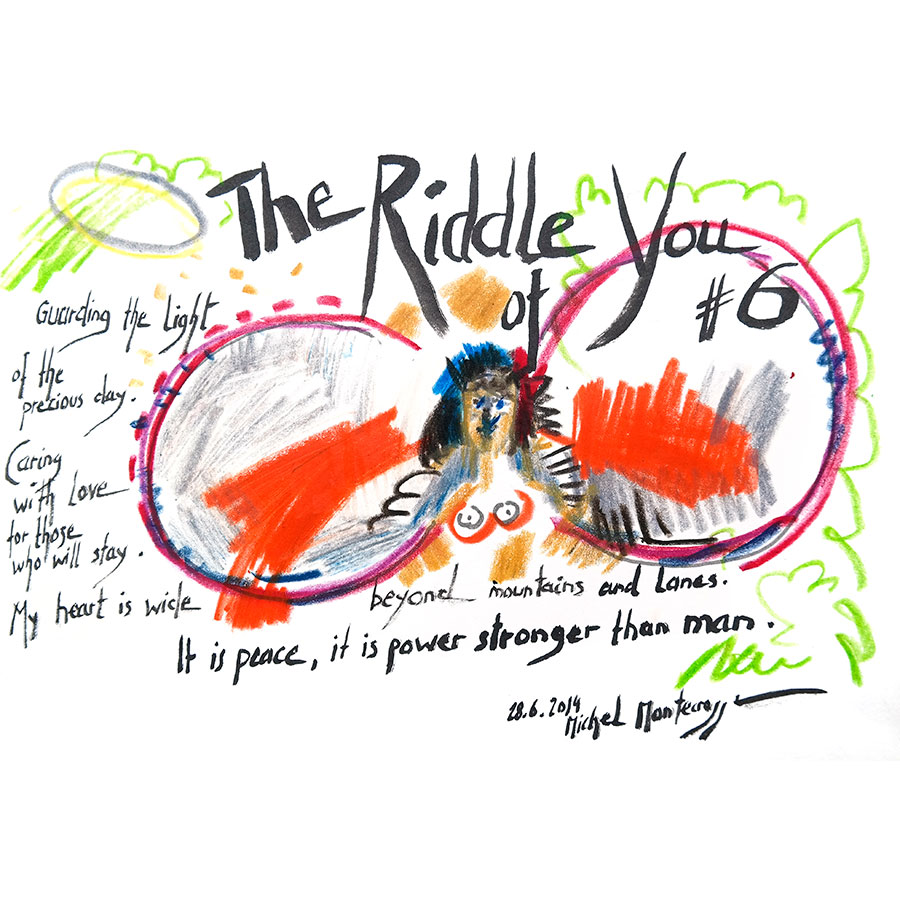 The Riddle
of You
#6
Guarding the Light
of the
precious day.
Caring
with Love
for those
who will stay.
My heart is wide
beyond mountains and Lanes.
It is peace, it is power stronger than man.
28.6.2014
Michel Montecrossa